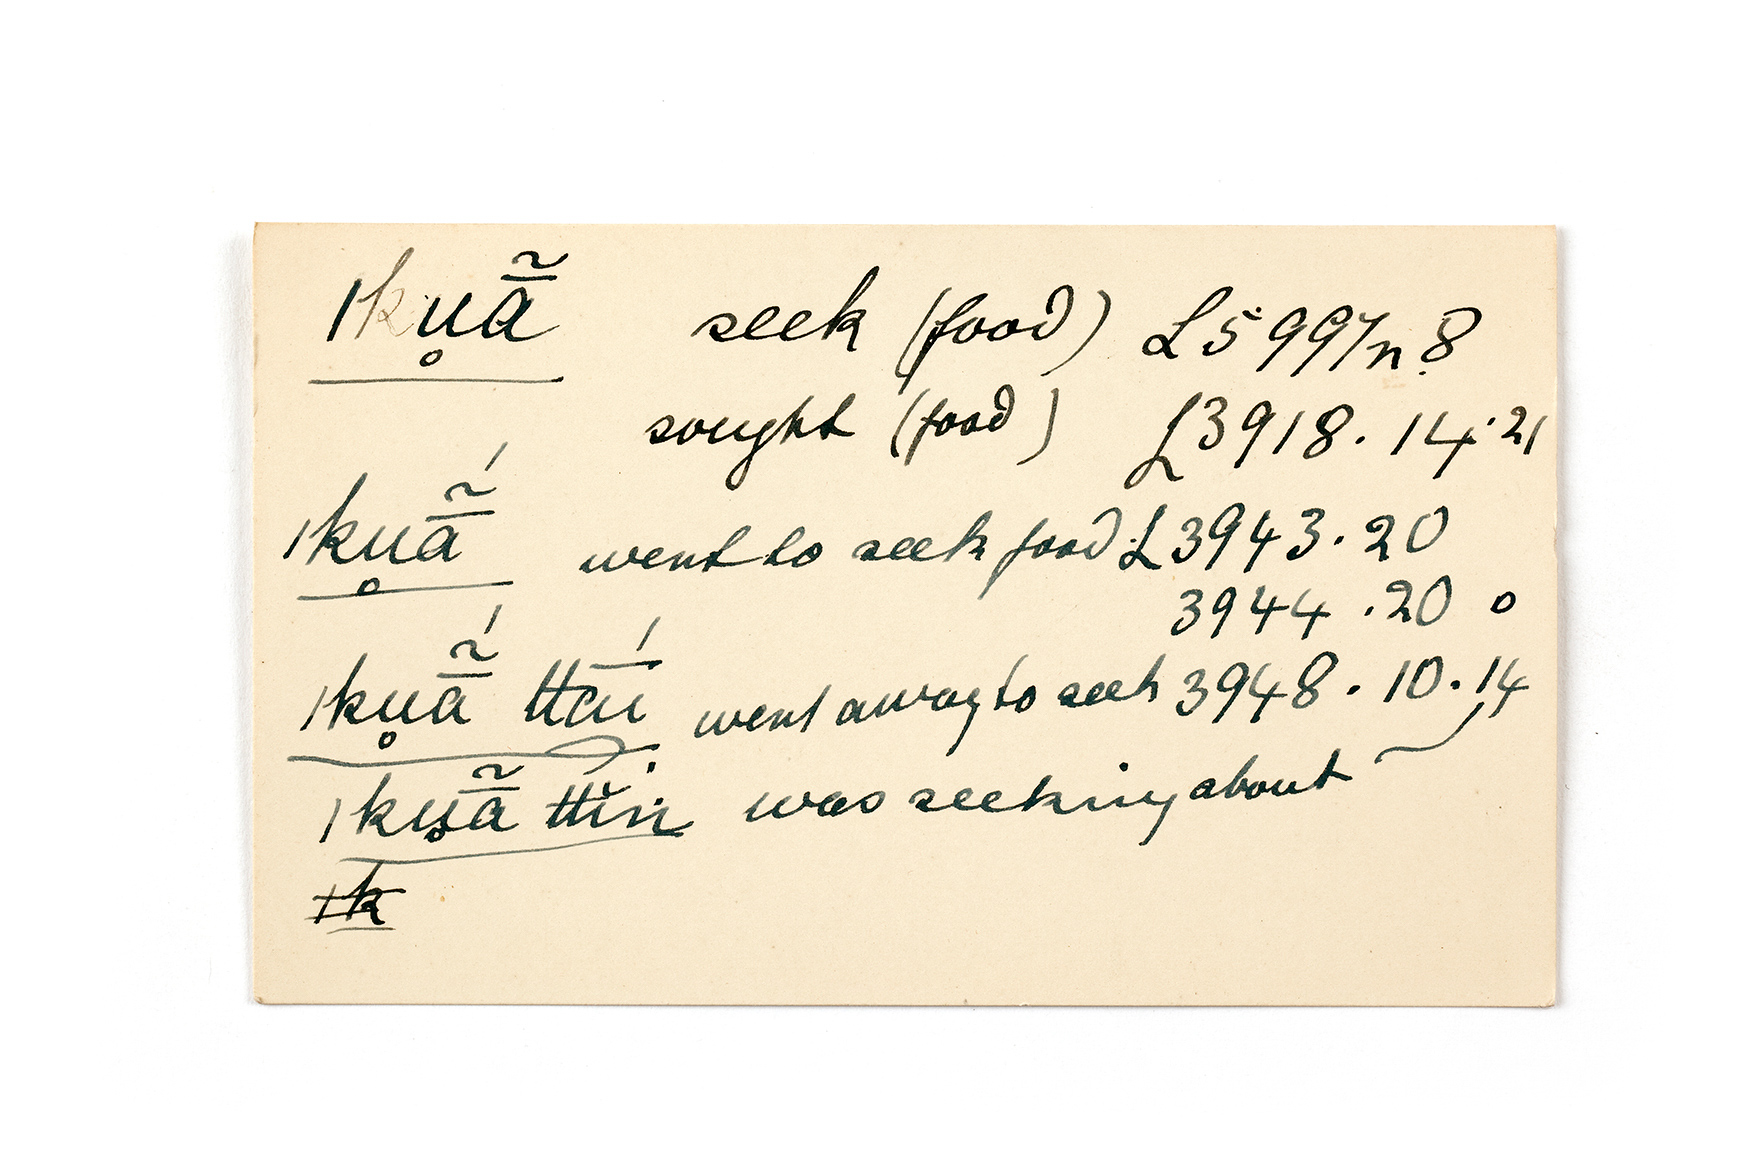 |ku̥ā̃ seek (food) L5997n.8
sought (food) L3918.14.21
|ku̥ā̃́ went to seek food L3943.20
3944.20 o
|ku̥ā̃́ ttāí went away to seek 3948.10.14
|ku̥ā̃ ttĭṅ was seeking about
|k